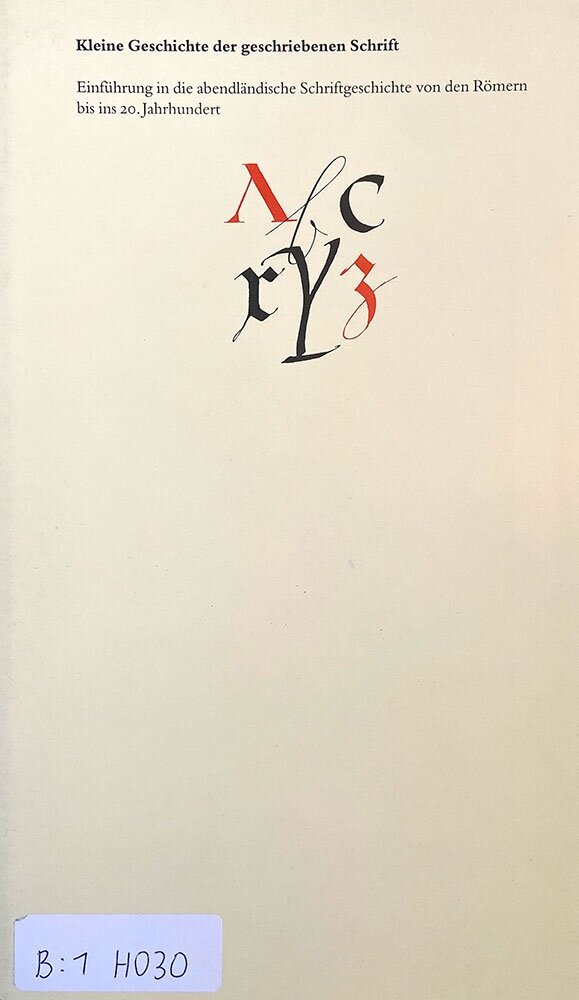 Kleine Geschichte der geschriebenen Schrift
Einführung in die abendländische Schriftgeschichte von den Römern
bis ins 20. Jahrhundert
A b C
x y z
B:1 H030